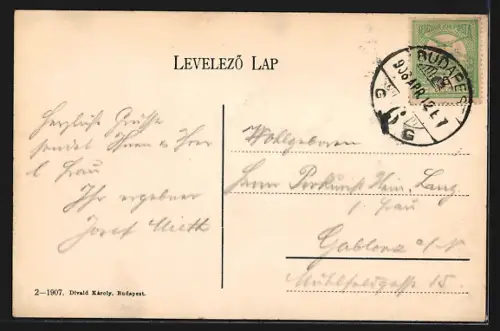 LEVELEZŐ LAP
BUDAPEST
908 APR 12
G G
Herzliche Grüsse
sendet Ihnen u Ihrer
l Frau
Ihr ergebner
Josef
Wohlgeboren
Herrn Prokurist Hein. Lang
Frau
Gablonz a/N
Mühlfeldgasse 15.
2—1907. Divald Károly, Budapest.